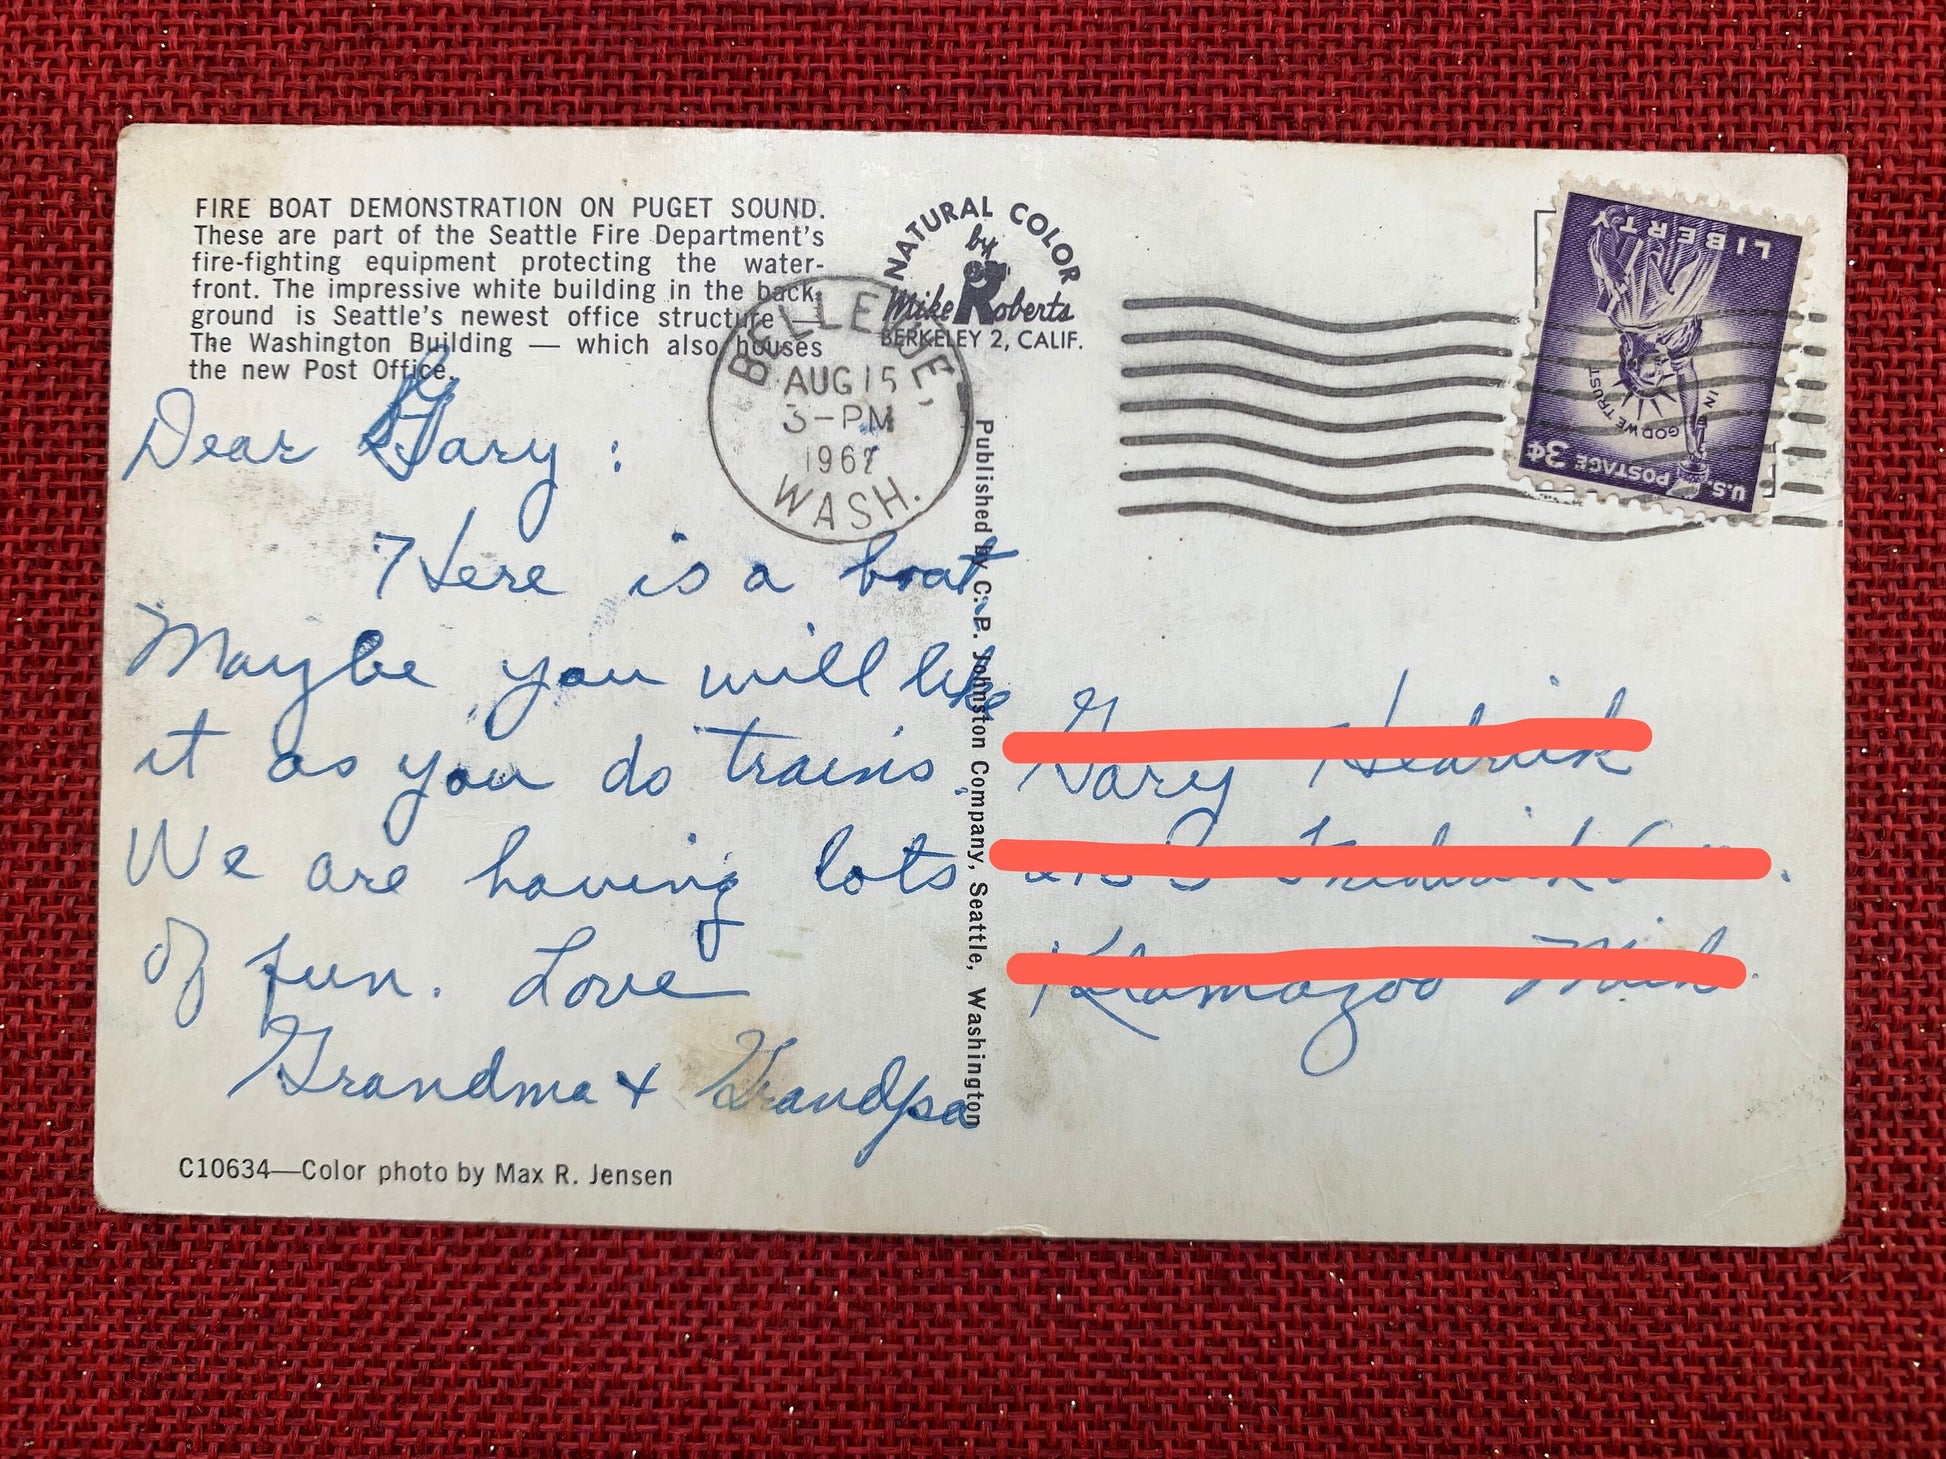 FIRE BOAT DEMONSTRATION ON PUGET SOUND.
These are part of the Seattle Fire Department's
fire-fighting equipment protecting the water-
front. The impressive white building in the back-
ground is Seattle's newest office structure —
The Washington Building — which also houses
the new Post Office.
NATURAL COLOR
by
Mike Roberts
BERKELEY 2, CALIF.
BELLEVUE,
AUG 15
3-PM
1962
WASH.
LIBERTY
IN GOD WE TRUST
U.S. POSTAGE 3¢
Dear Gary :
Here is a boat.
Maybe you will like
it as you do trains.
We are having lots
of fun. Love
Grandma + Grandpa
Published by C. P. Johnston Company, Seattle, Washington
C10634—Color photo by Max R. Jensen